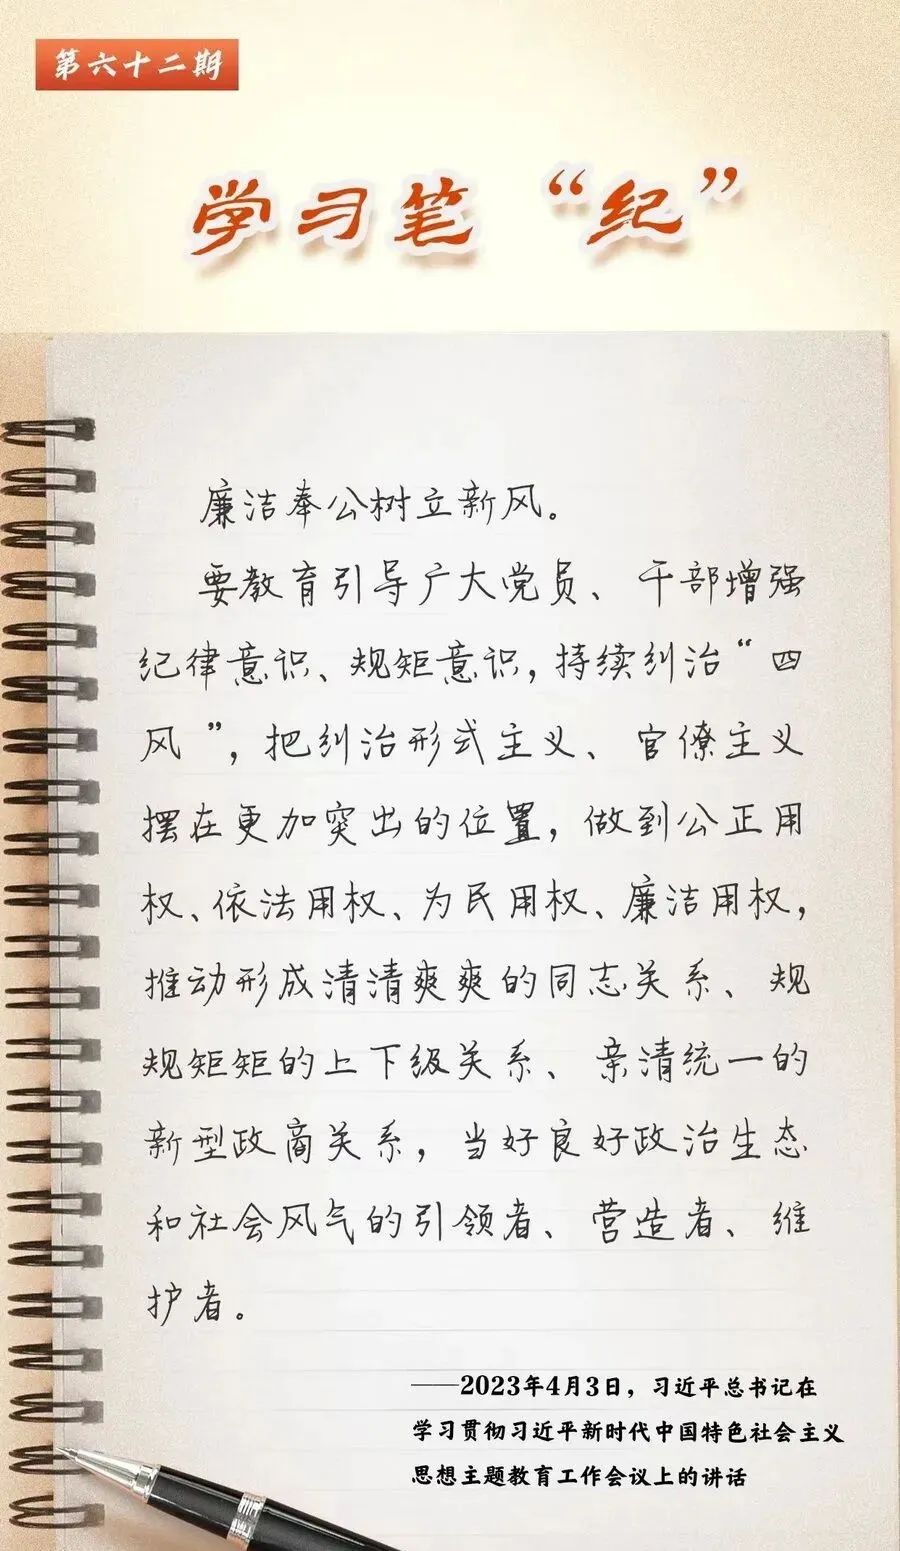 第六十二期
学习笔“纪”
廉洁奉公树立新风。
要教育引导广大党员、干部增强
纪律意识、规矩意识，持续纠治“四
风”，把纠治形式主义、官僚主义
摆在更加突出的位置，做到公正用
权、依法用权、为民用权、廉洁用权，
推动形成清清爽爽的同志关系、规
规矩矩的上下级关系、亲清统一的
新型政商关系，当好良好政治生态
和社会风气的引领者、营造者、维
护者。
——2023年4月3日，习近平总书记在
学习贯彻习近平新时代中国特色社会主义
思想主题教育工作会议上的讲话